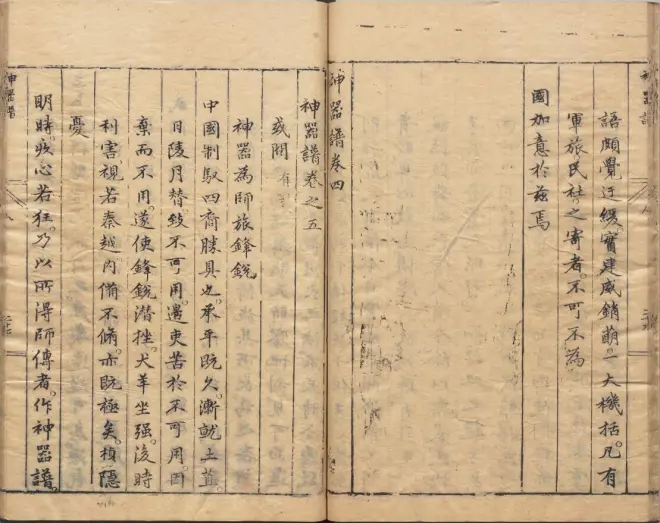 神器譜
語頗覺迂緩實建威銷萌一大機括凡有
軍旅民社之寄者不可不為
國加意於茲焉
神器譜卷四
神器譜卷之五
或問
神器為師旅鋒銳
中國制馭四裔勝具也承平既久漸就土苴
日陵月替致不可用邊吏苦於不可用因
棄而不用遂使鋒銳潛挫犬羊坐强後時
利害視若秦越內備不脩亦既極矣楨隱
憂
明時疚心若狂乃以所得師傳者作神器譜
神器譜